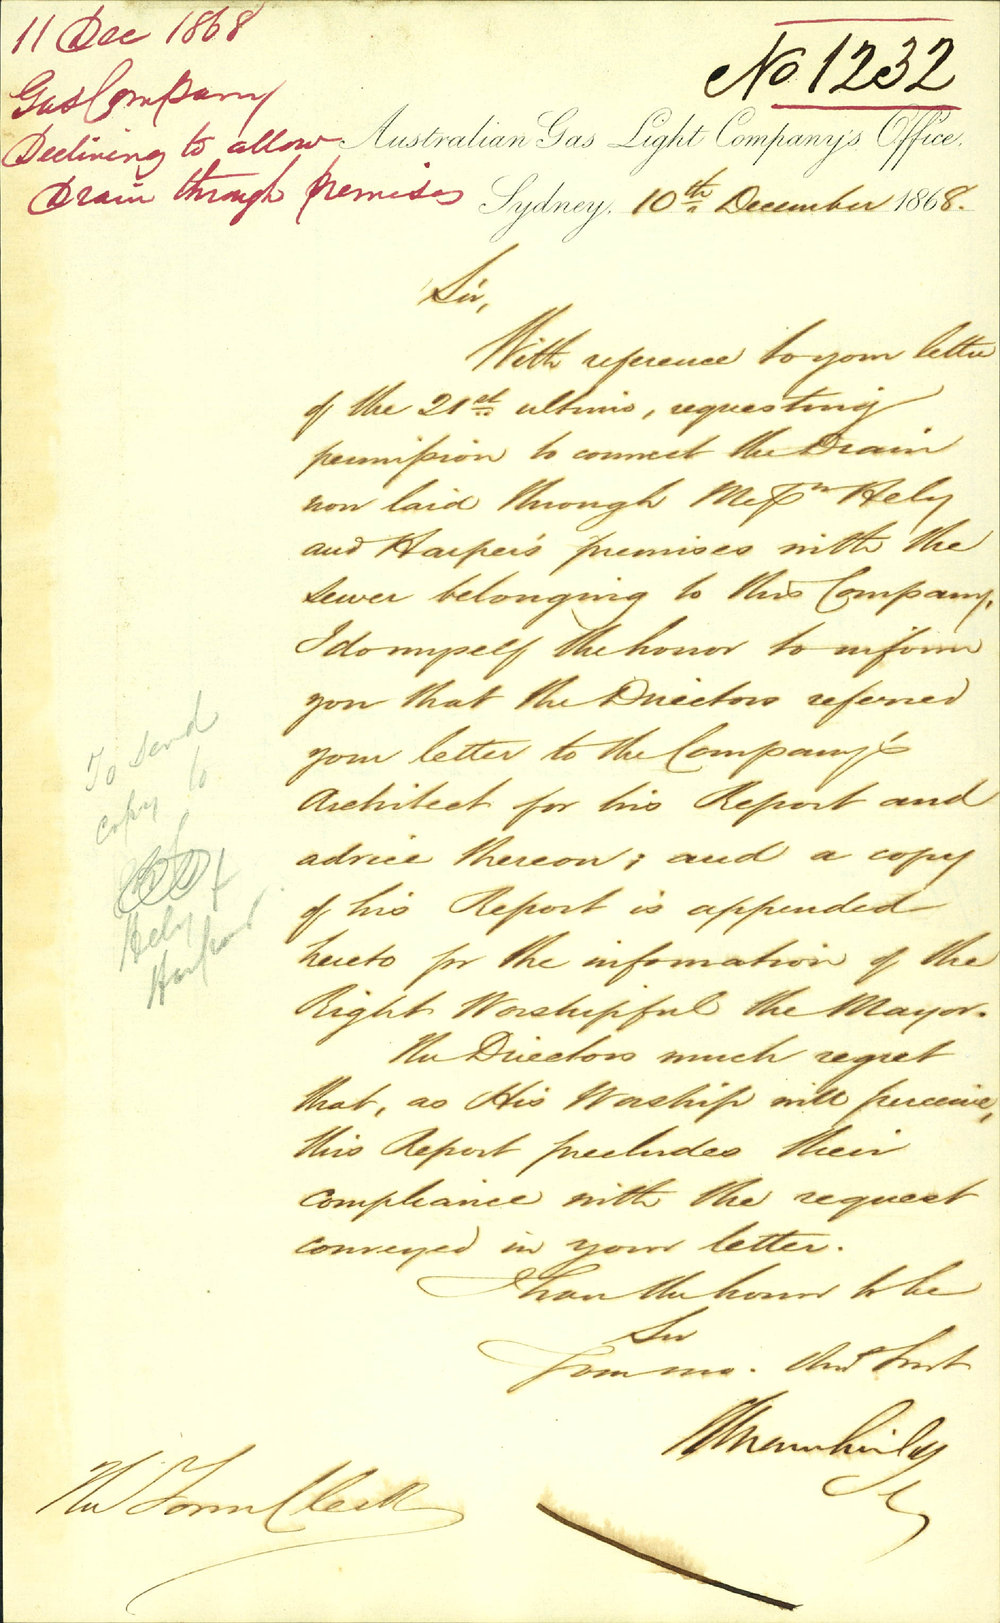 11 Dec 1868
Gas Company
Declining to allow
Drain through premises
No. 1232
Australian Gas Light Company's Office.
Sydney, 10th December 1868.
Sir,
With reference to your letter
of the 21st ultimo, requesting
permission to connect the Drain
now laid through Messrs Hely
and Harper's premises with the
sewer belonging to this Company,
I do myself the honor to inform
you that the Directors referred
your letter to the Company's
Architect for his Report and
advice thereon; and a copy
of his Report is appended
hereto for the information of the
Right Worshipful the Mayor.
The Directors much regret
that, as His Worship will perceive,
this Report precludes their
compliance with the request
conveyed in your letter.
I have the honor to be
Sir
Your mo. Obt Servt
The Town Clerk
To send
copy to
Hely
Harper